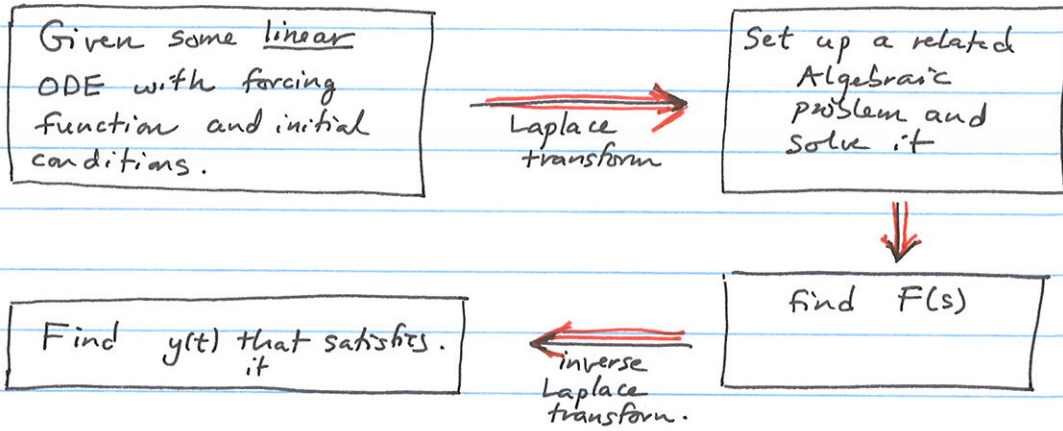 Given some linear
ODE with forcing
function and initial
conditions.
Laplace
transform
Set up a related
Algebraic
problem and
solve it
find F(s)
inverse
Laplace
transform.
Find y(t) that satisfies.
it